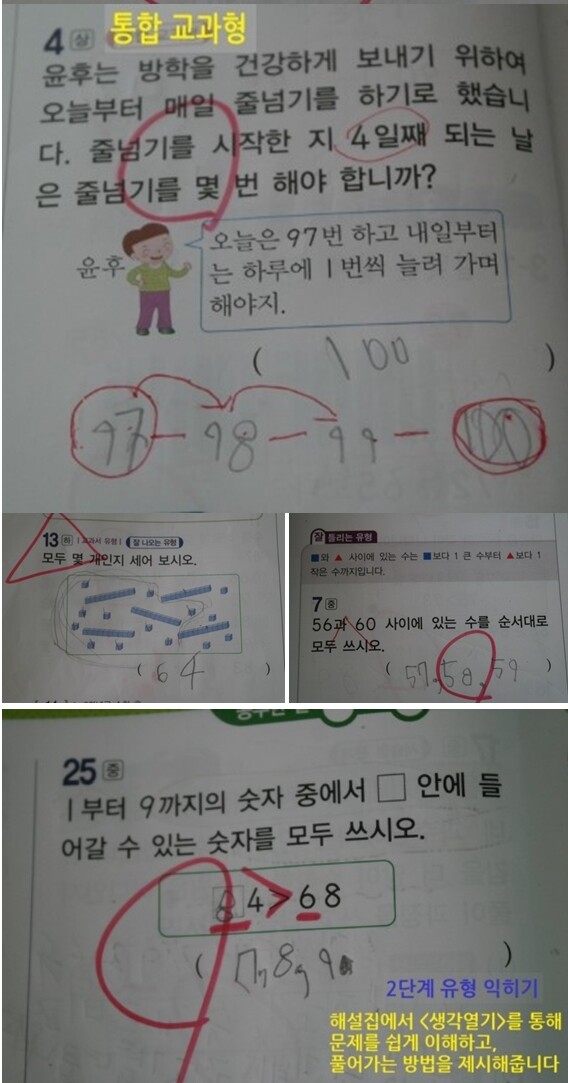 통합 교과형
4 상
윤후는 방학을 건강하게 보내기 위하여
오늘부터 매일 줄넘기를 하기로 했습니
다. 줄넘기를 시작한 지 4일째 되는 날
은 줄넘기를 몇 번 해야 합니까?
윤후
오늘은 97번 하고 내일부터
는 하루에 1번씩 늘려 가며
해야지.
( 100 )
97 - 98 - 99 - 100
13 하 교과서 유형 잘 나오는 유형
모두 몇 개인지 세어 보시오.
( 64 )
잘 틀리는 유형
■와 ▲ 사이에 있는 수는 ■보다 1 큰 수부터 ▲보다 1
작은 수까지입니다.
7 중
56과 60 사이에 있는 수를 순서대로
모두 쓰시오.
( 57, 58, 59 )
25 중
1부터 9까지의 숫자 중에서 □ 안에 들
어갈 수 있는 숫자를 모두 쓰시오.
8 4 > 68
( 7, 8, 9 )
2단계 유형 익히기
해설집에서 <생각열기>를 통해
문제를 쉽게 이해하고,
풀어가는 방법을 제시해줍니다